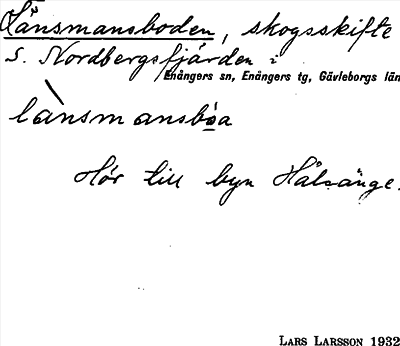 Länsmansboden, skogsskifte
S. Nordbergsfjärden i
Enångers sn, Enångers tg, Gävleborgs län
lànsmansbo̱a
Hör till byn Hålsänge.
LARS LARSSON 1932